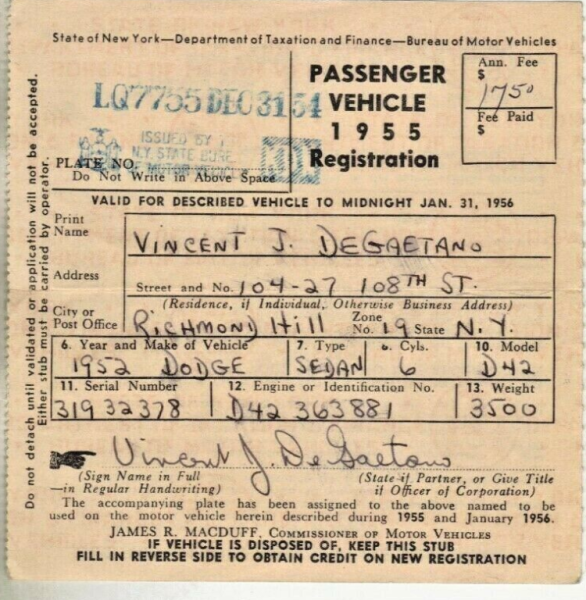 State of New York—Department of Taxation and Finance—Bureau of Motor Vehicles
LQ7755 DEC 31 54
ISSUED BY
N.Y. STATE BURE
MOTOR
PLATE NO.
Do Not Write in Above Space
PASSENGER
VEHICLE
1955
Registration
Ann. Fee
$
1750
Fee Paid
$
VALID FOR DESCRIBED VEHICLE TO MIDNIGHT JAN. 31, 1956
Print
Name
VINCENT J. DEGAETANO
Address
Street and No. 104-27 108TH ST.
(Residence, if Individual, Otherwise Business Address)
City or
Post Office
RICHMOND HILL Zone No. 19 State N.Y.
6. Year and Make of Vehicle 7. Type 8. Cyls. 10. Model
1952 DODGE SEDAN 6 D42
11. Serial Number 12. Engine or Identification No. 13. Weight
31932378 D42 363881 3500
Vincent J. DeGaetano
(Sign Name in Full
—in Regular Handwriting)
(State if Partner, or Give Title
if Officer of Corporation)
The accompanying plate has been assigned to the above named to be
used on the motor vehicle herein described during 1955 and January 1956.
JAMES R. MACDUFF, COMMISSIONER OF MOTOR VEHICLES
IF VEHICLE IS DISPOSED OF, KEEP THIS STUB
FILL IN REVERSE SIDE TO OBTAIN CREDIT ON NEW REGISTRATION
Do not detach until validated or application will not be accepted.
Either stub must be carried by operator.